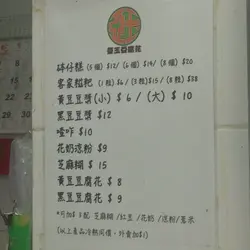 砵仔糕 (5個) $12/ (6個) $14/ (8個) $20
客家糍粑 (1粒) $6/ (3粒) $15/ (8粒) $38
黃豆豆漿(小) $6 / (大) $10
黑豆豆漿 $12
喳咋 $10
花奶涼粉 $9
芝麻糊 $15
黃豆豆腐花 $8
黑豆豆腐花 $9
*可加$3配 芝麻糊/紅豆/花奶/涼粉/薏米
(以上產品冷熱同價，外賣加$1)